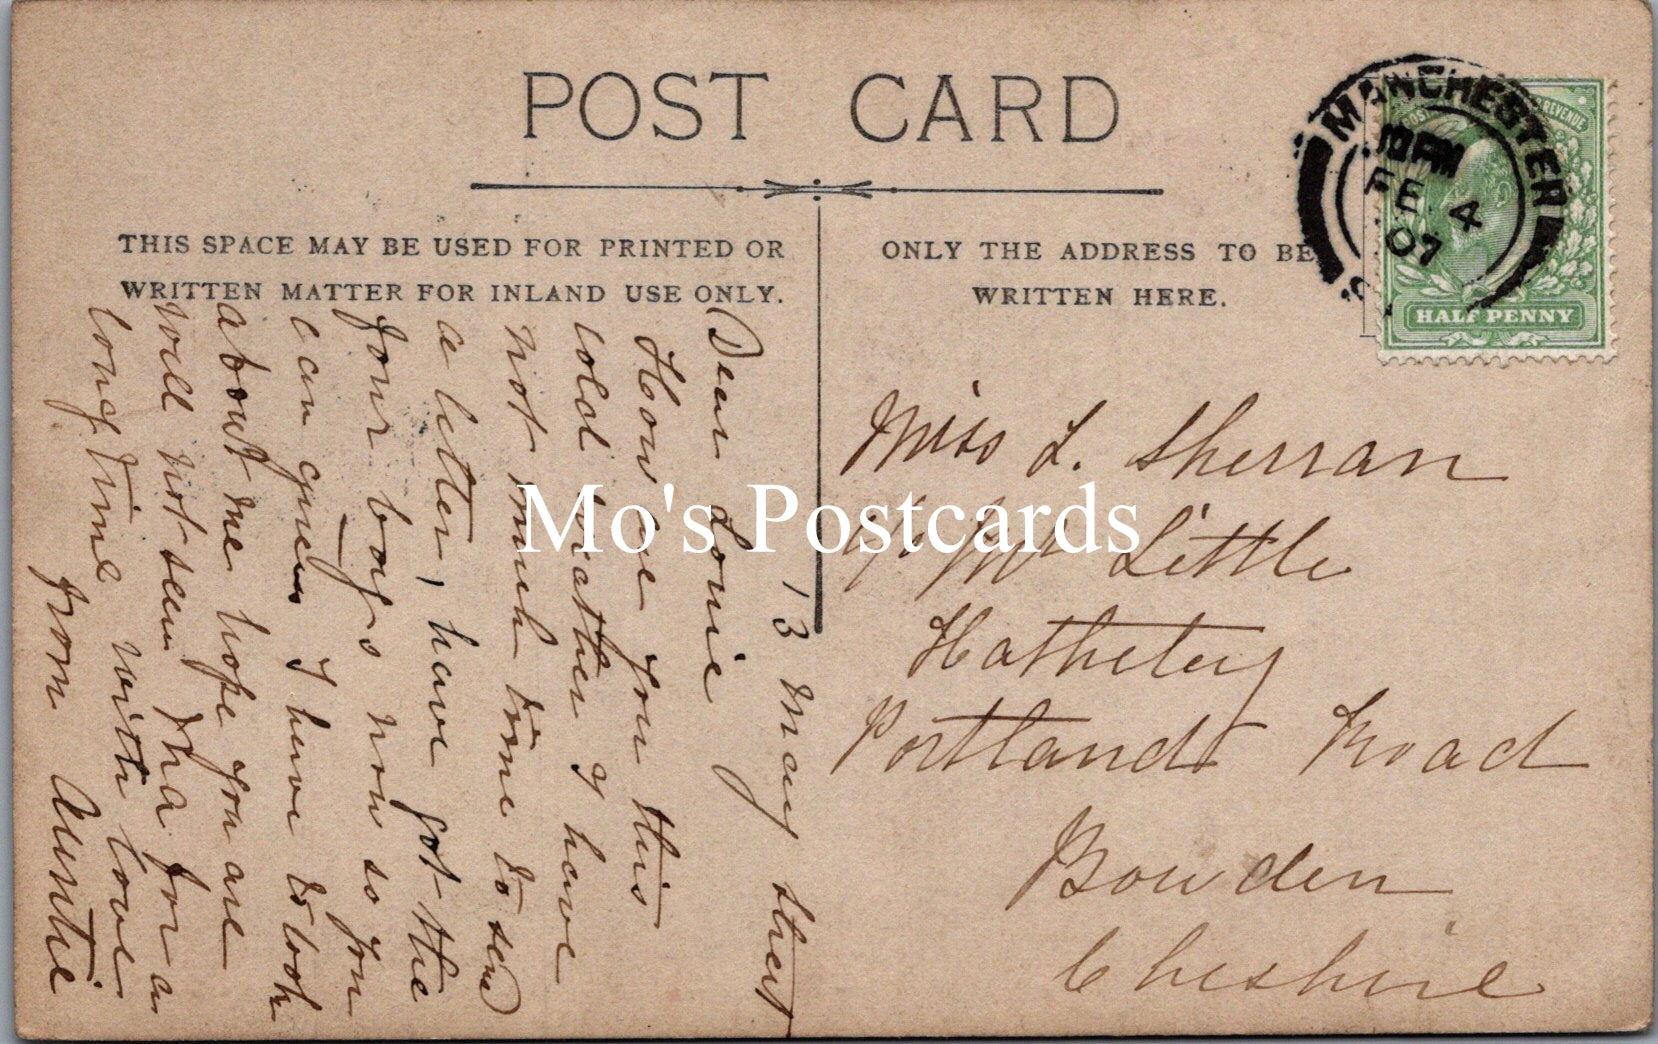 POST CARD
THIS SPACE MAY BE USED FOR PRINTED OR
WRITTEN MATTER FOR INLAND USE ONLY.
ONLY THE ADDRESS TO BE
WRITTEN HERE.
MANCHESTER
10 PM
FE 4
07
REVENUE
HALF PENNY
13 May Street
Dear Louie
How are you this
cold weather I have
not much time to send
a letter, have got the
four boys now so you
can guess I have to look
about me hope you are
will not seen Ma for a
long time with love
from Auntie
Miss L. Sherran
Little
Portland Road
Bowden
Cheshire
Mo's Postcards